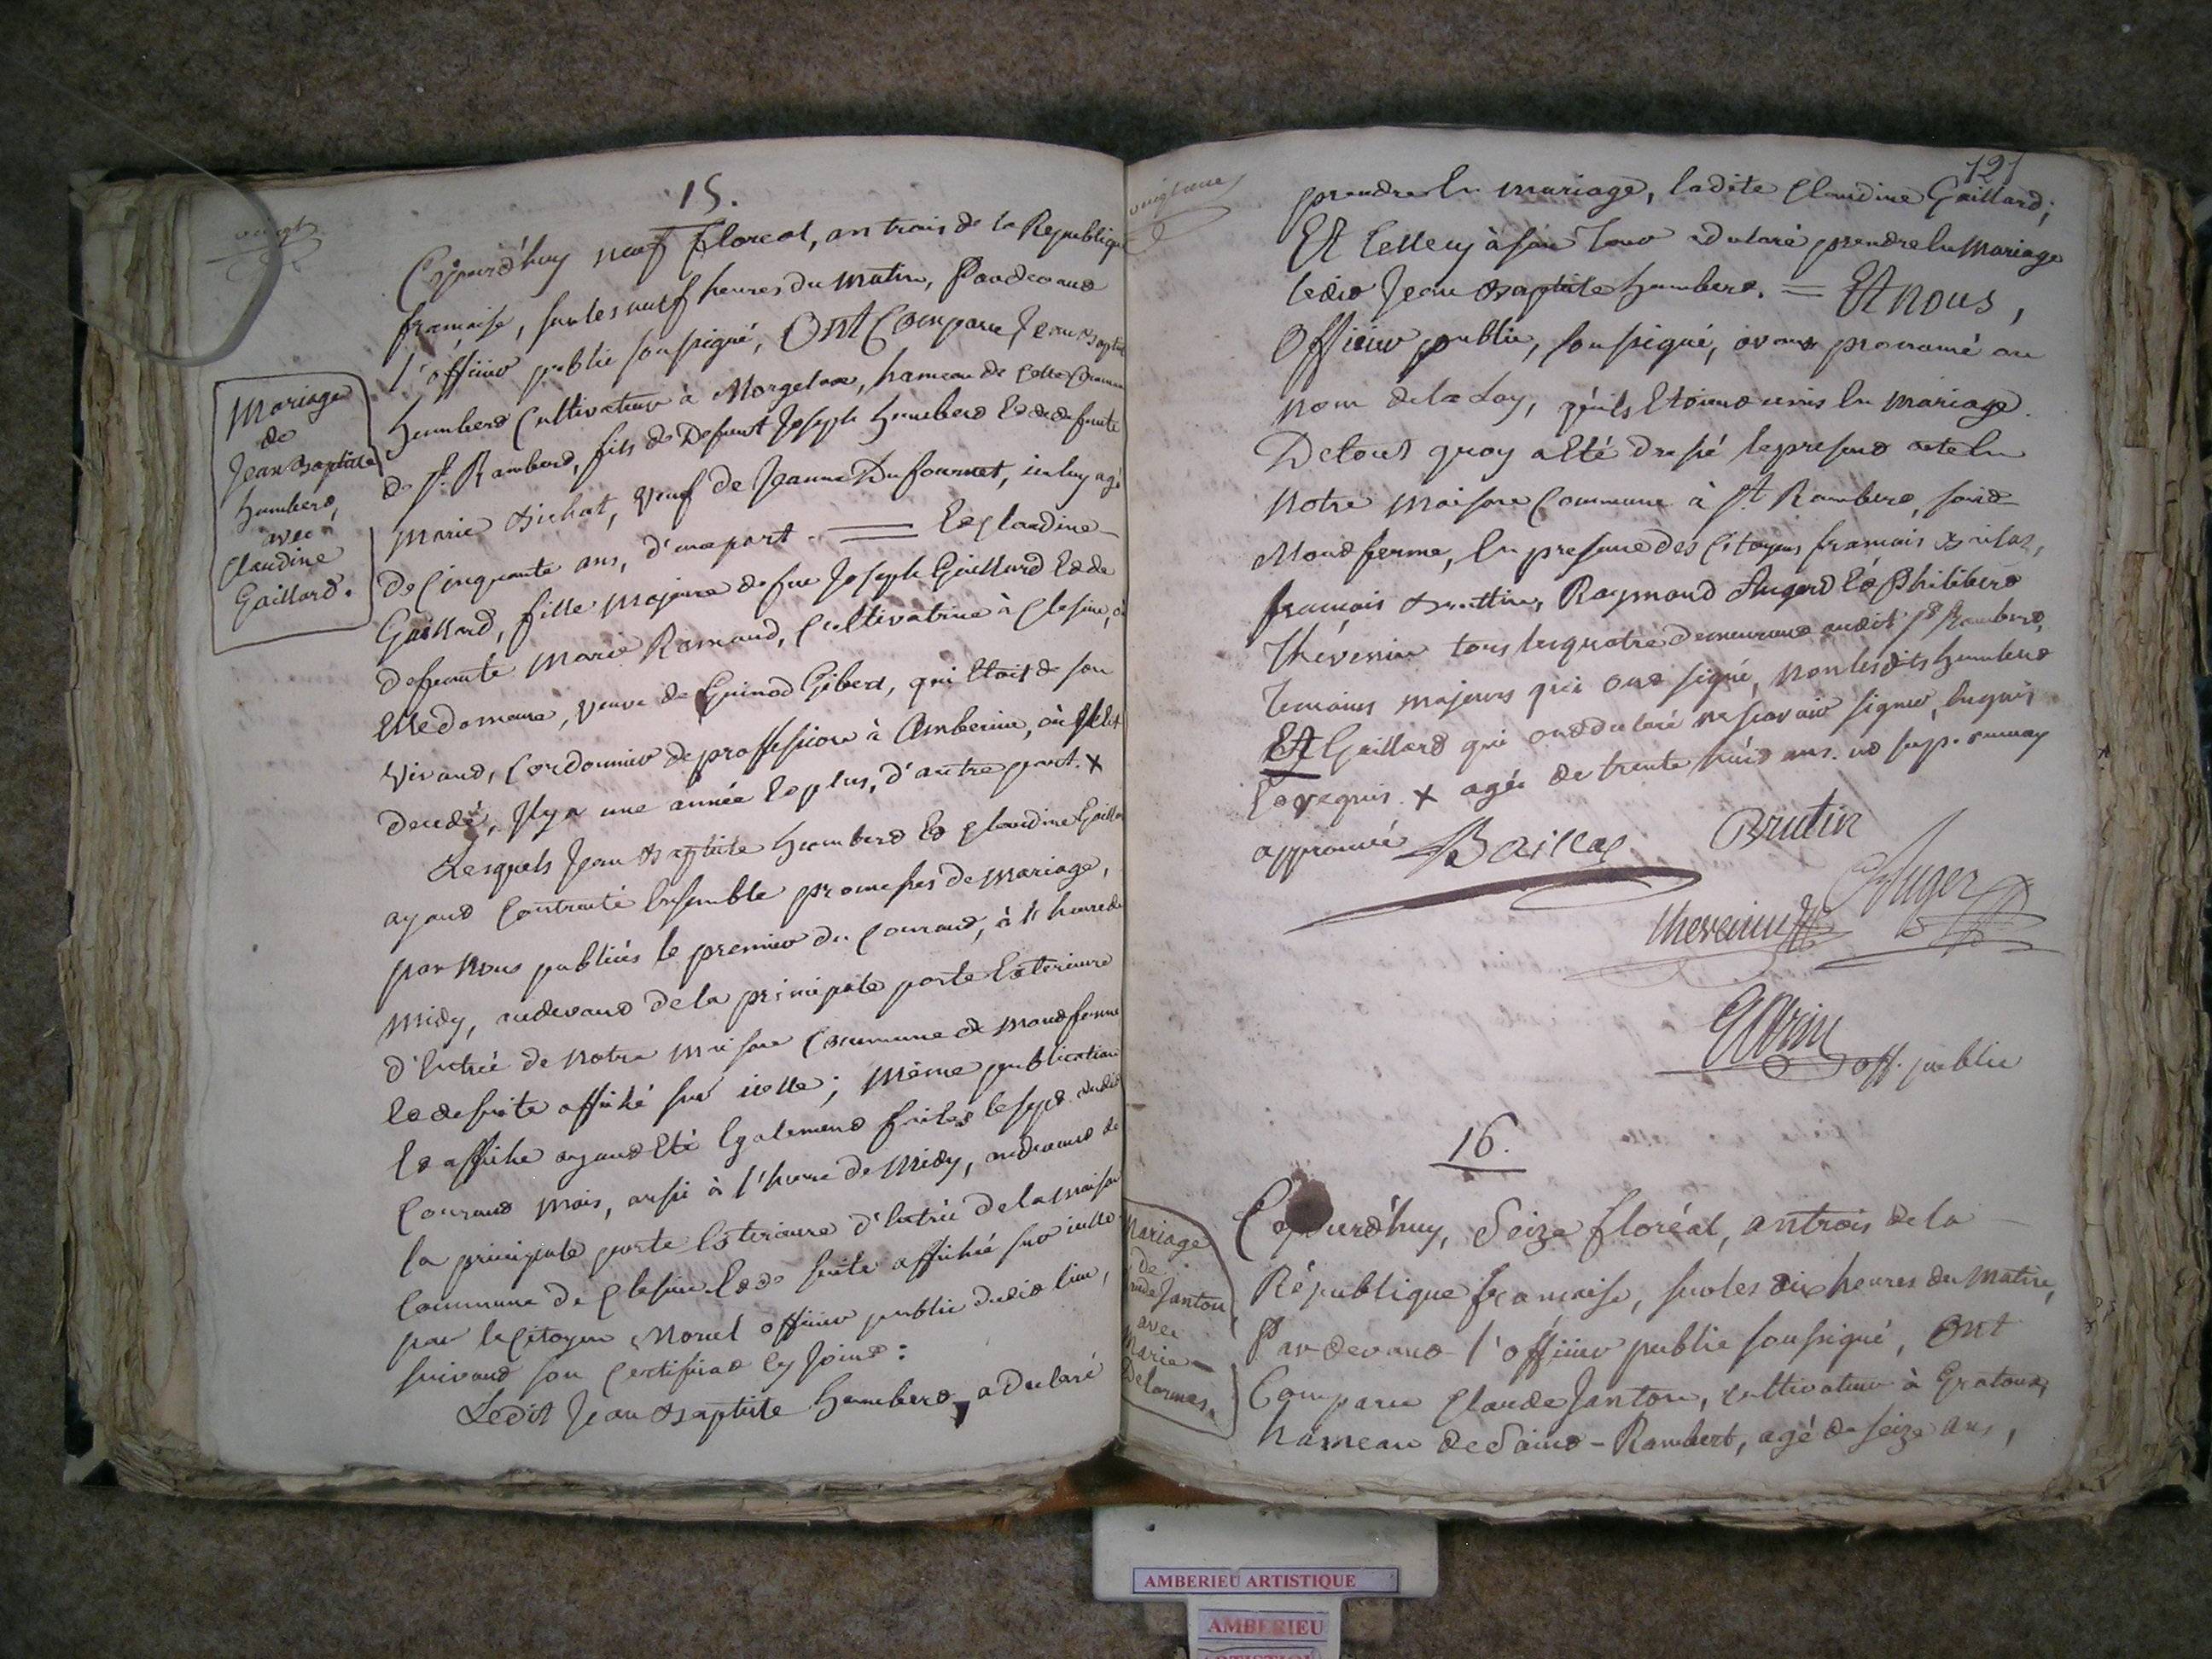 vingt
15.
Cejourd'huy neuf Floreal, an trois de la Republique
française, sur les neuf heures du matin, Pardevant
l'officier public soussigné, Ont Comparu Jean Baptiste
humbert Cultivateur à Morgelaz, hameau de cette Commune
de St. Rambert, fils de Defunt Joseph humbert Et de defunte
Marie Bichat, veuf de Jeanne Dufournet, icelluy agé
de Cinquante ans, d'une part. = Et Claudine
Gaillard, fille majeure de feu Joseph Gaillard Et de
deffunte Marie Ramand, Cultivatrice à Clesieu, où
Elle demeure, veuve de Guinod Gibert, qui Etoit de son
vivant, Cordonnier de proffession à Amberieu, où Il Est
decedé, Il y a une année Et plus, d'autre part. x
Lesquels Jean Baptiste humbert Et Claudine Gaillard
ayant Contracté Ensemble promesses de mariage,
par Nous publiées le premier du Courant, à l'heure de
midy, audevant de la principale porte Exterieure
d'Entrée de notre maison Commune de Montferme
Et de suite affiché sur icelle; même publication
Et affiche ayant Eté Egalement faites le sept dudit
Courant mois, aussi à l'heure de Midy, audevant de
la principale porte Exterieure d'Entrée de la maison
Commune de Clesieu Et de suite affiché sur icelle
par le Citoyen Morel officier public dudit lieu,
suivant son Certificat Cy Joint:
Ledit Jean Baptiste humbert, a declaré
Mariage
de
Jean Baptiste
humbert,
avec
Claudine
Gaillard.
vingt une
121
prendre En mariage, ladite Claudine Gaillard;
Et Celle cy à son Tour a declaré prendre En Mariage
ledit Jean Baptiste humbert. = Et nous,
Officier public, soussigné, avons prononcé au
nom de la Loy, qu'ils Etoient unis En mariage.
De tout quoy a Eté dressé le present acte En
Notre Maison Commune à St. Rambert, soit
Mont ferme, En presence des Citoyens francois Bailat,
français Bruttin, Raymond Augerd Et Philibert
Thévenin tous les quatre demeurant audit St. Rambert,
Temoins majeurs qui ont signé, non lesdits humbert
Et Gaillard qui ont declaré ne scavoir signer, Enquis
Et requis. x agée de trente huit ans.
approuvé Baillat Brutin
Auger
thevenin
off. public
16.
Cejourd'huy, Seize floréal, an trois de la
République française, sur les dix heures du Matin,
Pardevant l'officier public soussigné, Ont
Comparu Claude Janton, cultivateur à Gratoux,
hameau de Saint-Rambert, agé de seize ans,
Mariage
de
Claude Janton
avec
Marie
Delormes.
AMBERIEU ARTISTIQUE
AMBERIEU
ARTISTIQUE